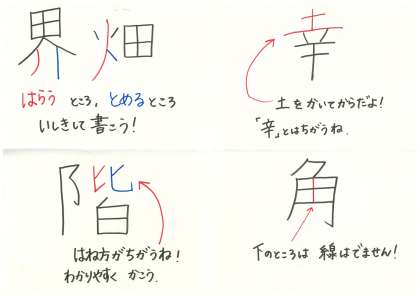 界 畑
はらう ところ、とめるところ
いしきして書こう!
幸
土をかいてからだよ!
「辛」とはちがうね.
階
はね方がちがうね!
わかりやすく かこう.
角
下のところは 線はでません!